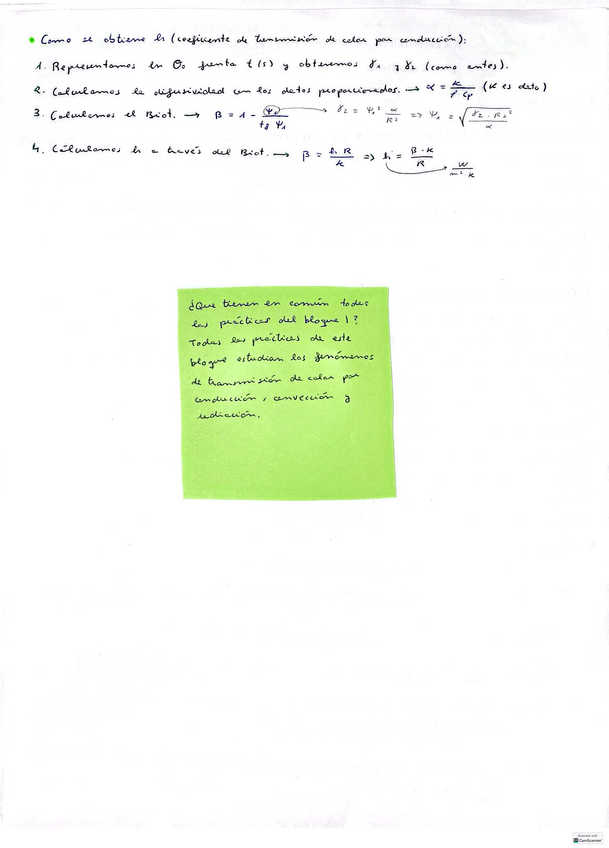 • Como se obtiene h (coeficiente de transmisión de calor por conducción):
1. Representamos ln θ₀ frente t (s) y obtenemos γ₁ y γ₂ (como antes).
2. Calculamos la difusividad con los datos proporcionados. → α = K / ρ Cp (K es dato)
3. Calculamos el Biot. → β = 1 - Ψ₁ / tg Ψ₁ → γ₂ = Ψ₁² α / R² => Ψ₁ = √(γ₂ · R² / α)
4. Cálculamos h a través del Biot. → β = h R / K => h = β · K / R → W / m² K
¿Que tienen en común todas
las prácticas del bloque 1?
Todas las prácticas de este
bloque estudian los fenómenos
de transmisión de calor por
conducción, convección y
radiación.
Scanned with
CamScanner